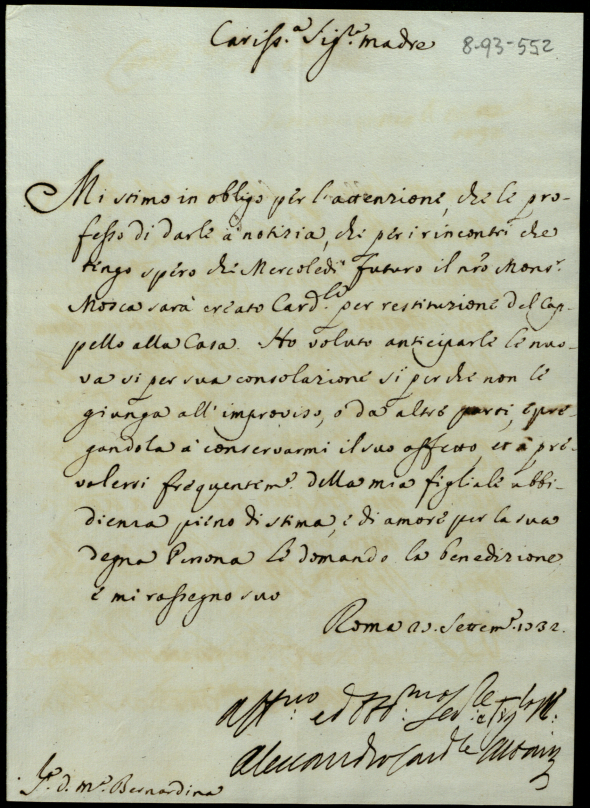 Cariss.ª Sig.ra madre
8-93-552
Mi stimo in obligo per l'attenzione, che le pro-
fesso di darle à notizia, che per i rincontri che
tengo spero che Mercoledi futuro il nr̃o Mons.r
Mosca sarà creato Card.le per restituzione del Cap-
pello alla Casa. Ho voluto anticiparle le nuo-
va si per sua consolazione si perche non le
giunga all'improviso, ò da altre parti, e pre-
gandola à conservarmi il suo affetto, et à pre-
valersi frequentem.e della mia figliale ubbi-
dienza pieno di stima, e di amore per la sua
degna Persona le domando la benedizione
e mi rassegno suo
Roma 27. Settem.e 1732.
Aff.mo ed Obb.mo Ser.e e figlo
Alessandro Card.le Albani
S.ra d. M.ª Bernardina